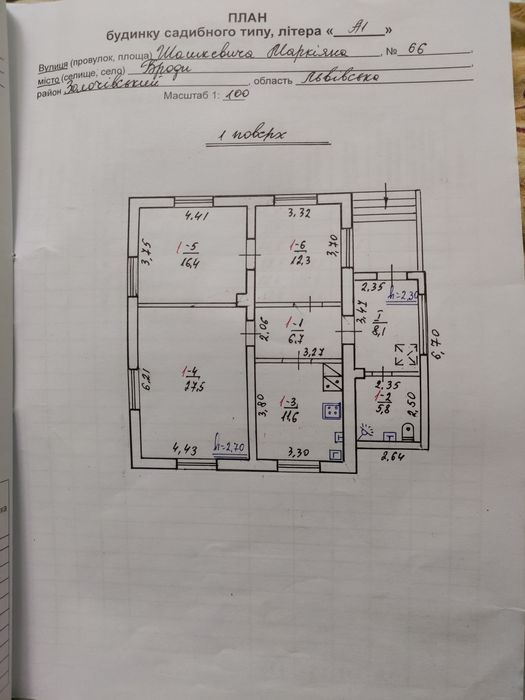 ПЛАН
будинку садибного типу, літера « А1 »
Вулиця (провулок, площа) Шашкевича Маркіяна, № 66
місто (селище, село) Броди
район Золочівський, область Львівська
Масштаб 1: 100
1 поверх
4,41
3,32
3,75
1-5
16,4
1-6
12,3
3,70
2,35
h=2,30
3,47
I
8,1
2,06
1-1
6,7
3,27
6,70
6,21
1-4
27,5
3,80
1-3
11,6
2,35
1-2
5,8
2,50
4,43
h=2,70
3,30
2,64